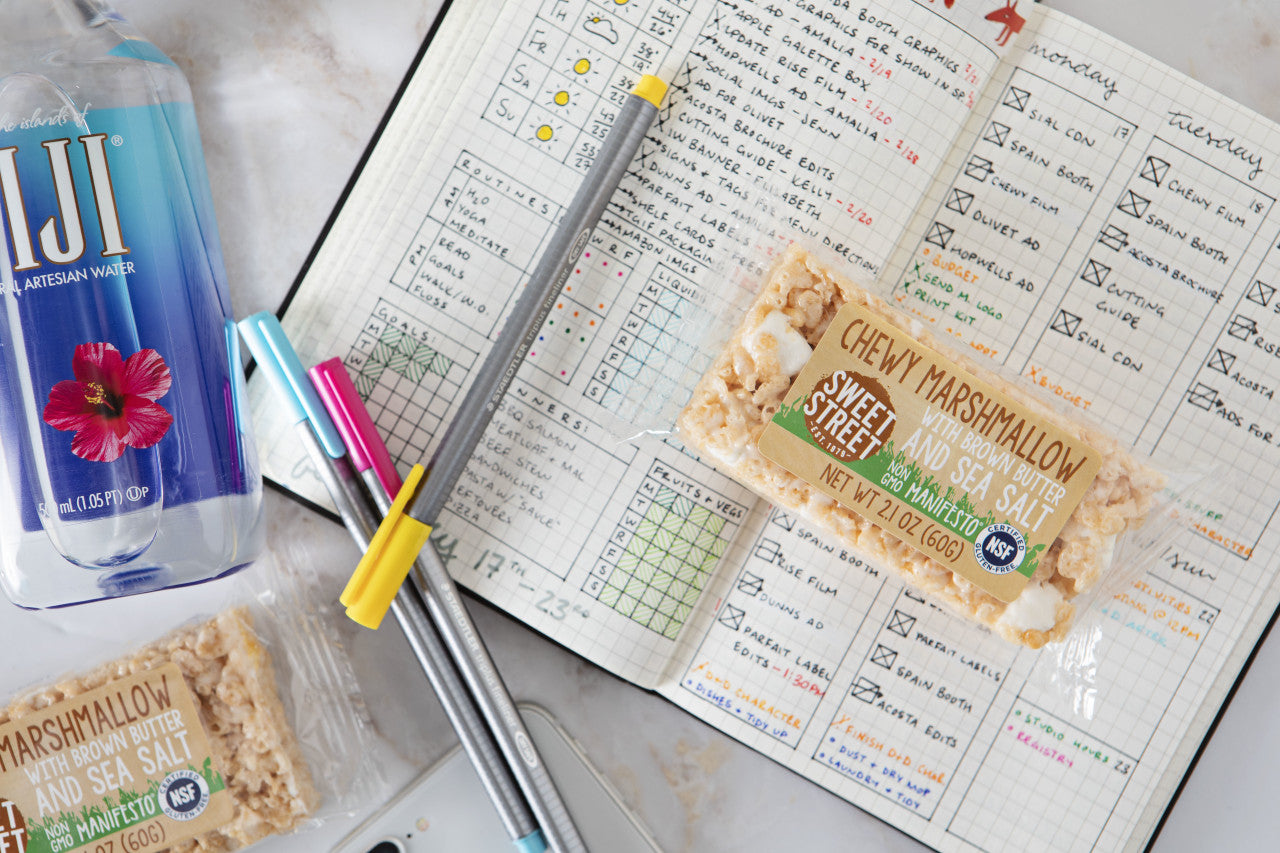 the islands of
IJI®
ARTESIAN WATER
mL (1.05 PT) U P
Th
Fr
Sa
Su
44°
26°
38°
ROUTINES
H₂O
YOGA
MEDITATE
READ
GOALS
WALK/W.O.
FLOSS
GOALS:
M
T
W
R
F
S
S
W R F
LIQUIDS
M
T
W
R
F
S
S
BBQ SALMON
MEATLOAF + MAC
BEEF STEW
SANDWICHES
PASTA W/ "SAUCE"
LEFTOVERS
PIZZA
FRUITS + VEGS
M
T
W
R
F
S
S
17TH - 23RD
BOOTH GRAPHICS
GRAPHICS FOR SHOW IN SP.
AD - AMALIA - 2/19
APPLE GALETTE BOX
UPDATE RISE FILM - 2/20
HOPWELLS AD - AMALIA - 2/28
SOCIAL IMGS - JENN
AD FOR OLIVET
ACOSTA BROCHURE EDITS
CUTTING GUIDE - KELLY - 2/20
IW BANNER - ELIZABETH
SIGNS + TAGS FOR MENU DIRECTIONS
DUNNS AD - AMALIA
PARFAIT LABELS
SHELF CARDS
TGIF PACKAGING
AMAZON IMGS
monday
17
SIAL CDN
SPAIN BOOTH
CHEWY FILM
OLIVET AD
HOPWELLS AD
BUDGET
SEND M. LOGO
PRINT KIT
tuesday
18
CHEWY FILM
SPAIN BOOTH
ACOSTA BROCHURE
CUTTING
GUIDE
SIAL CDN
BUDGET
RISE
ACOSTA
ADS FOR
SPAIN BOOTH
RISE FILM
DUNNS AD
PARFAIT LABEL
EDITS - 1:30PM
D+D CHARACTER
DISHES + TIDY UP
PARFAIT LABELS
SPAIN BOOTH
ACOSTA EDITS
FINISH D+D CHAR
DUST + DRY MOP
LAUNDRY + TIDY
22
@ 12PM
sun
STUDIO HOURS
REGISTRY
23
STAEDTLER triplus fineliner
STAEDTLER
CHEWY MARSHMALLOW
WITH BROWN BUTTER
AND SEA SALT
SWEET
STREET
-EST. 1979-
NON
GMO MANIFESTO
NET WT 2.1 OZ (60G)
CERTIFIED
NSF
GLUTEN-FREE
MARSHMALLOW
WITH BROWN BUTTER
AND SEA SALT
NON
GMO MANIFESTO
CERTIFIED
NSF
GLUTEN-FREE
OZ (60G)